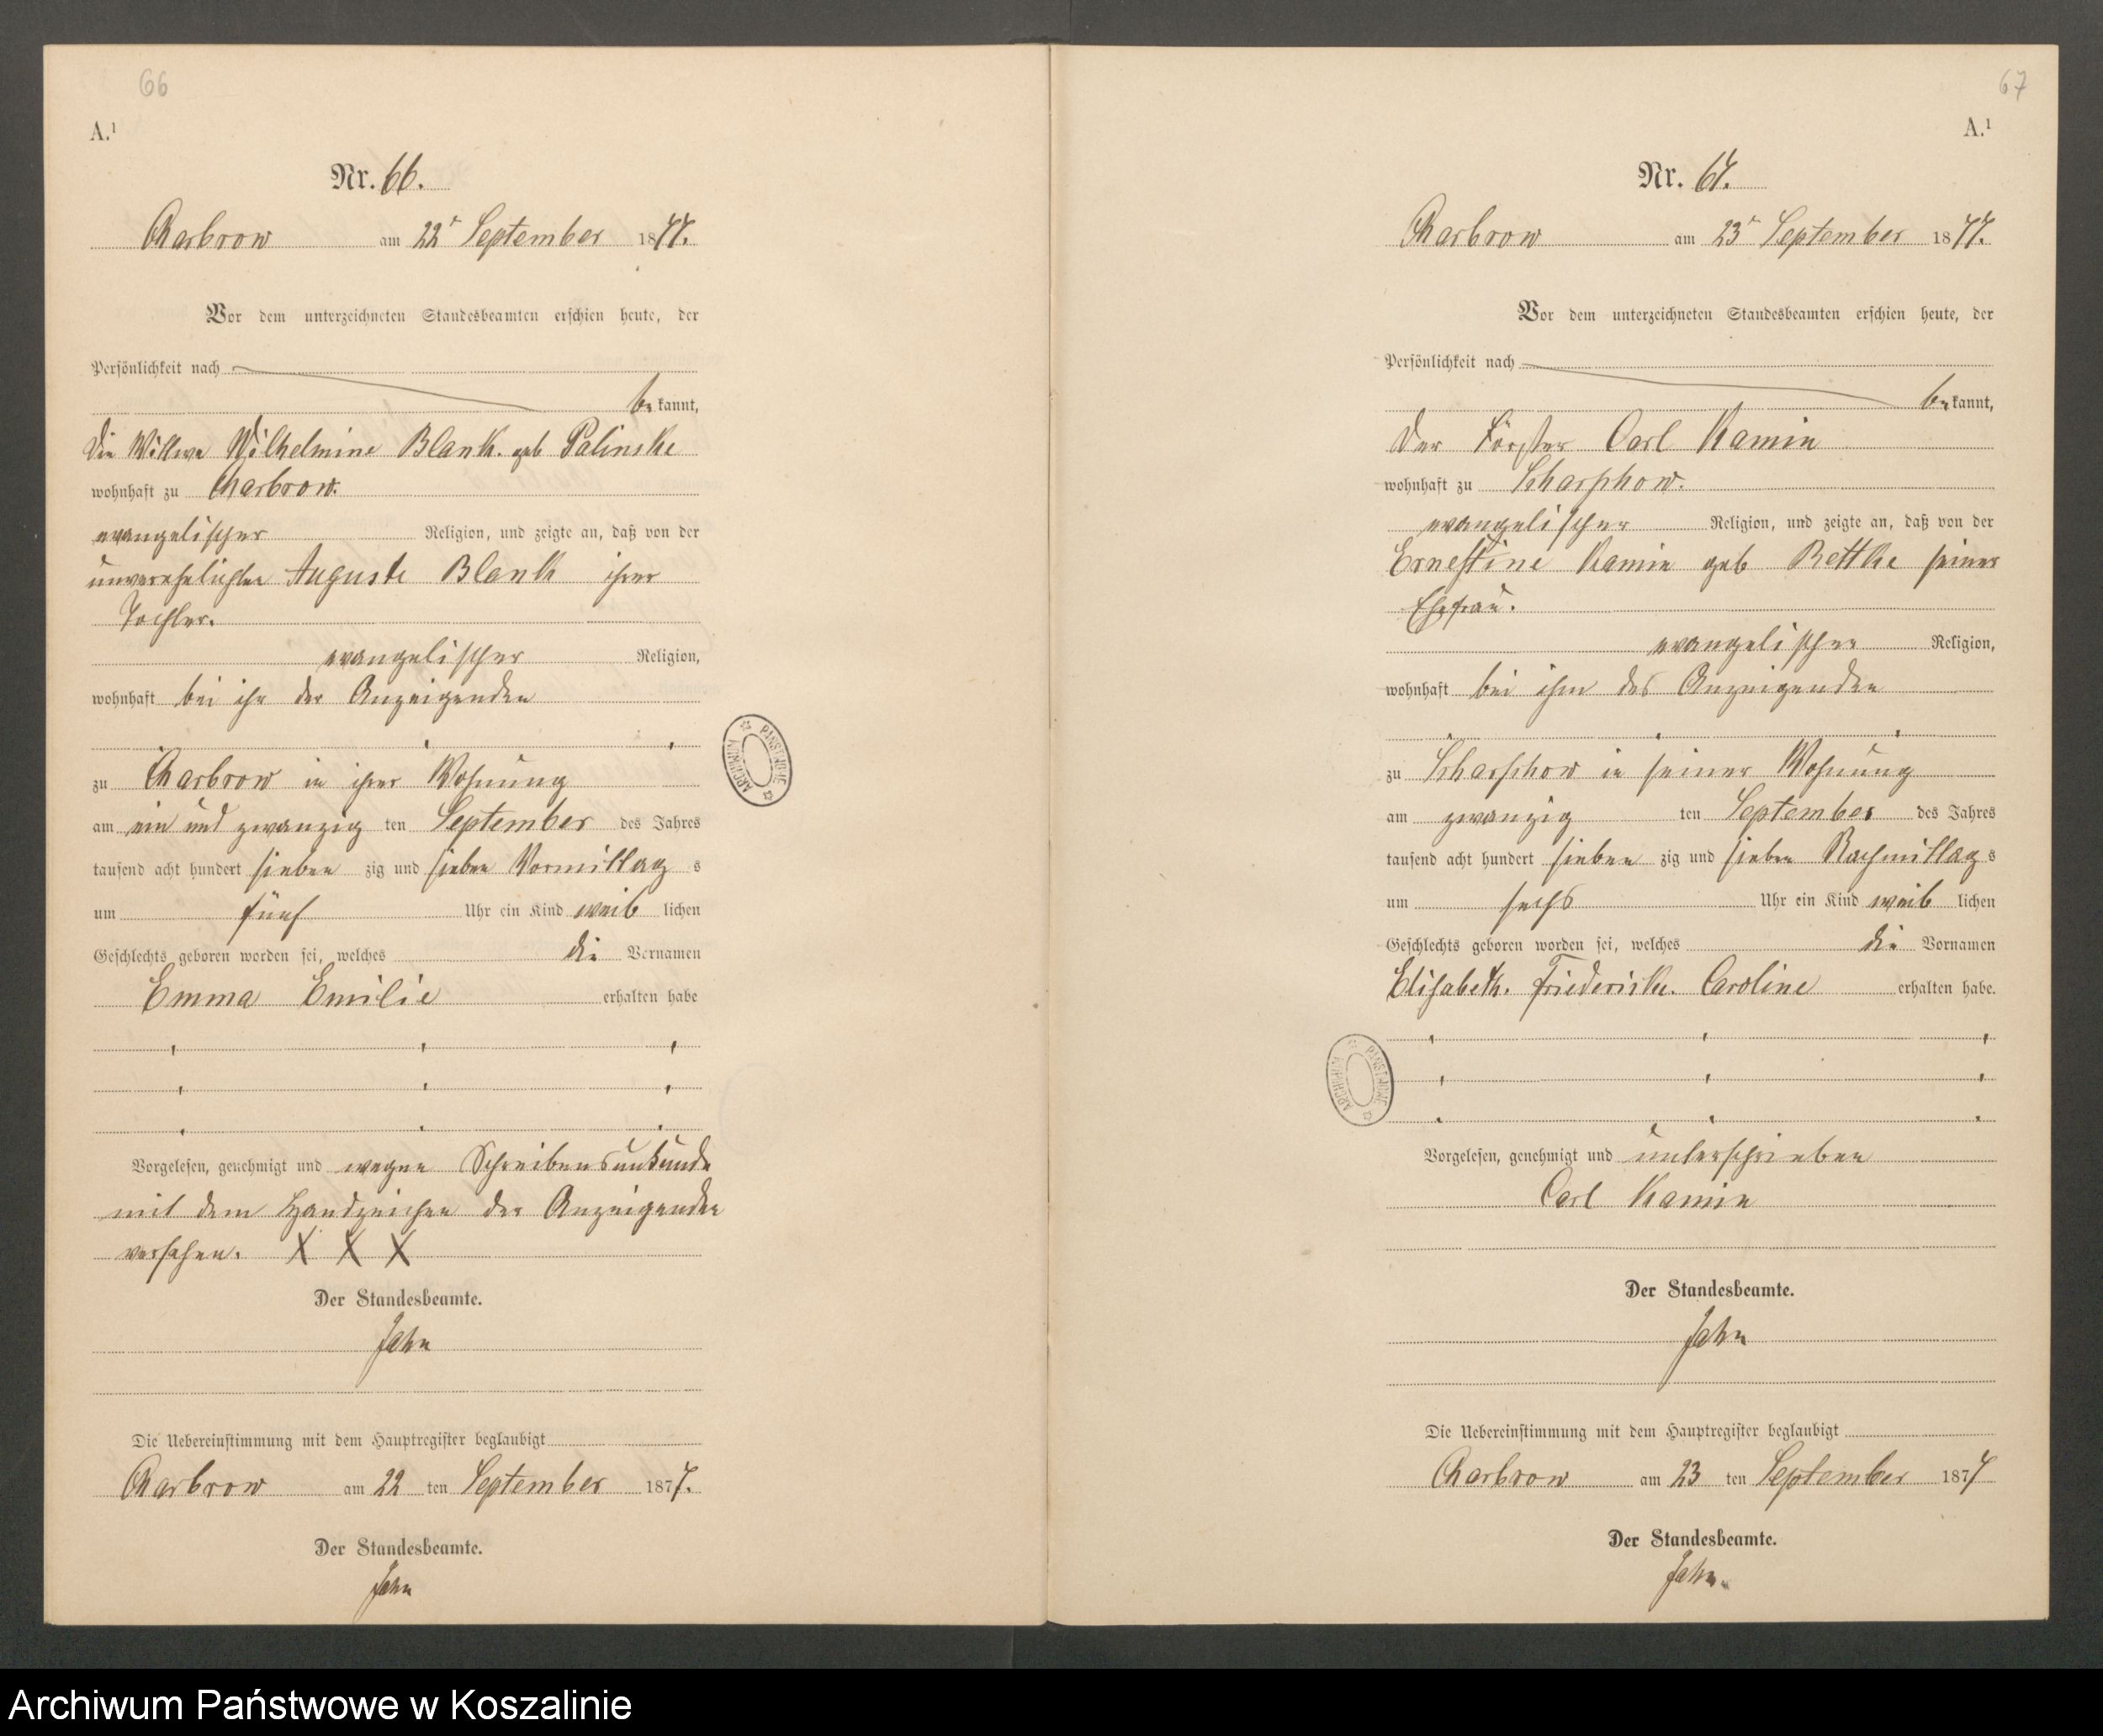 66
A.¹
Nr. 66.
Charbrow am 22ᵗ September 1877.
Vor dem unterzeichneten Standesbeamten erschien heute, der
Persönlichkeit nach
bekannt,
die Wittwe Wilhelmine Blank. geb Palinske
wohnhaft zu Charbrow.
evangelischer Religion, und zeigte an, daß von der
unverehelichten Auguste Blank ihrer
Tochter.
evangelischer Religion,
wohnhaft bei ihr der Anzeigenden
zu Charbrow in ihrer Wohnung
am ein und zwanzig ten September des Jahres
tausend acht hundert sieben zig und sieben Vormittag s
um fünf Uhr ein Kind weib lichen
Geschlechts geboren worden sei, welches die Vornamen
Emma Emilie erhalten habe
Vorgelesen, genehmigt und wegen Schreibensunkunde
mit dem Handzeichen der Anzeigenden
versehen. X X X
Der Standesbeamte.
Jahn
Die Uebereinstimmung mit dem Hauptregister beglaubigt
Charbrow am 22 ten September 1877.
Der Standesbeamte.
Jahn
67
A.¹
Nr. 67.
Charbrow am 23ᵗ September 1877.
Vor dem unterzeichneten Standesbeamten erschien heute, der
Persönlichkeit nach
bekannt,
der Förster Carl Kamin
wohnhaft zu Scharschow.
evangelischer Religion, und zeigte an, daß von der
Ernestine Kamin geb Rettke seiner
Ehefrau.
evangelischer Religion,
wohnhaft bei ihm des Anzeigenden
zu Scharschow in seiner Wohnung
am zwanzig ten September des Jahres
tausend acht hundert sieben zig und sieben Nachmittag s
um sechs Uhr ein Kind weib lichen
Geschlechts geboren worden sei, welches die Vornamen
Elisabeth. Friederike. Caroline erhalten habe.
Vorgelesen, genehmigt und unterschrieben
Carl Kamin
Der Standesbeamte.
Jahn
Die Uebereinstimmung mit dem Hauptregister beglaubigt
Charbrow am 23 ten September 1877
Der Standesbeamte.
Jahn.
ARCHIWUM PAŃSTWOWE
ARCHIWUM PAŃSTWOWE
Archiwum Państwowe w Koszalinie